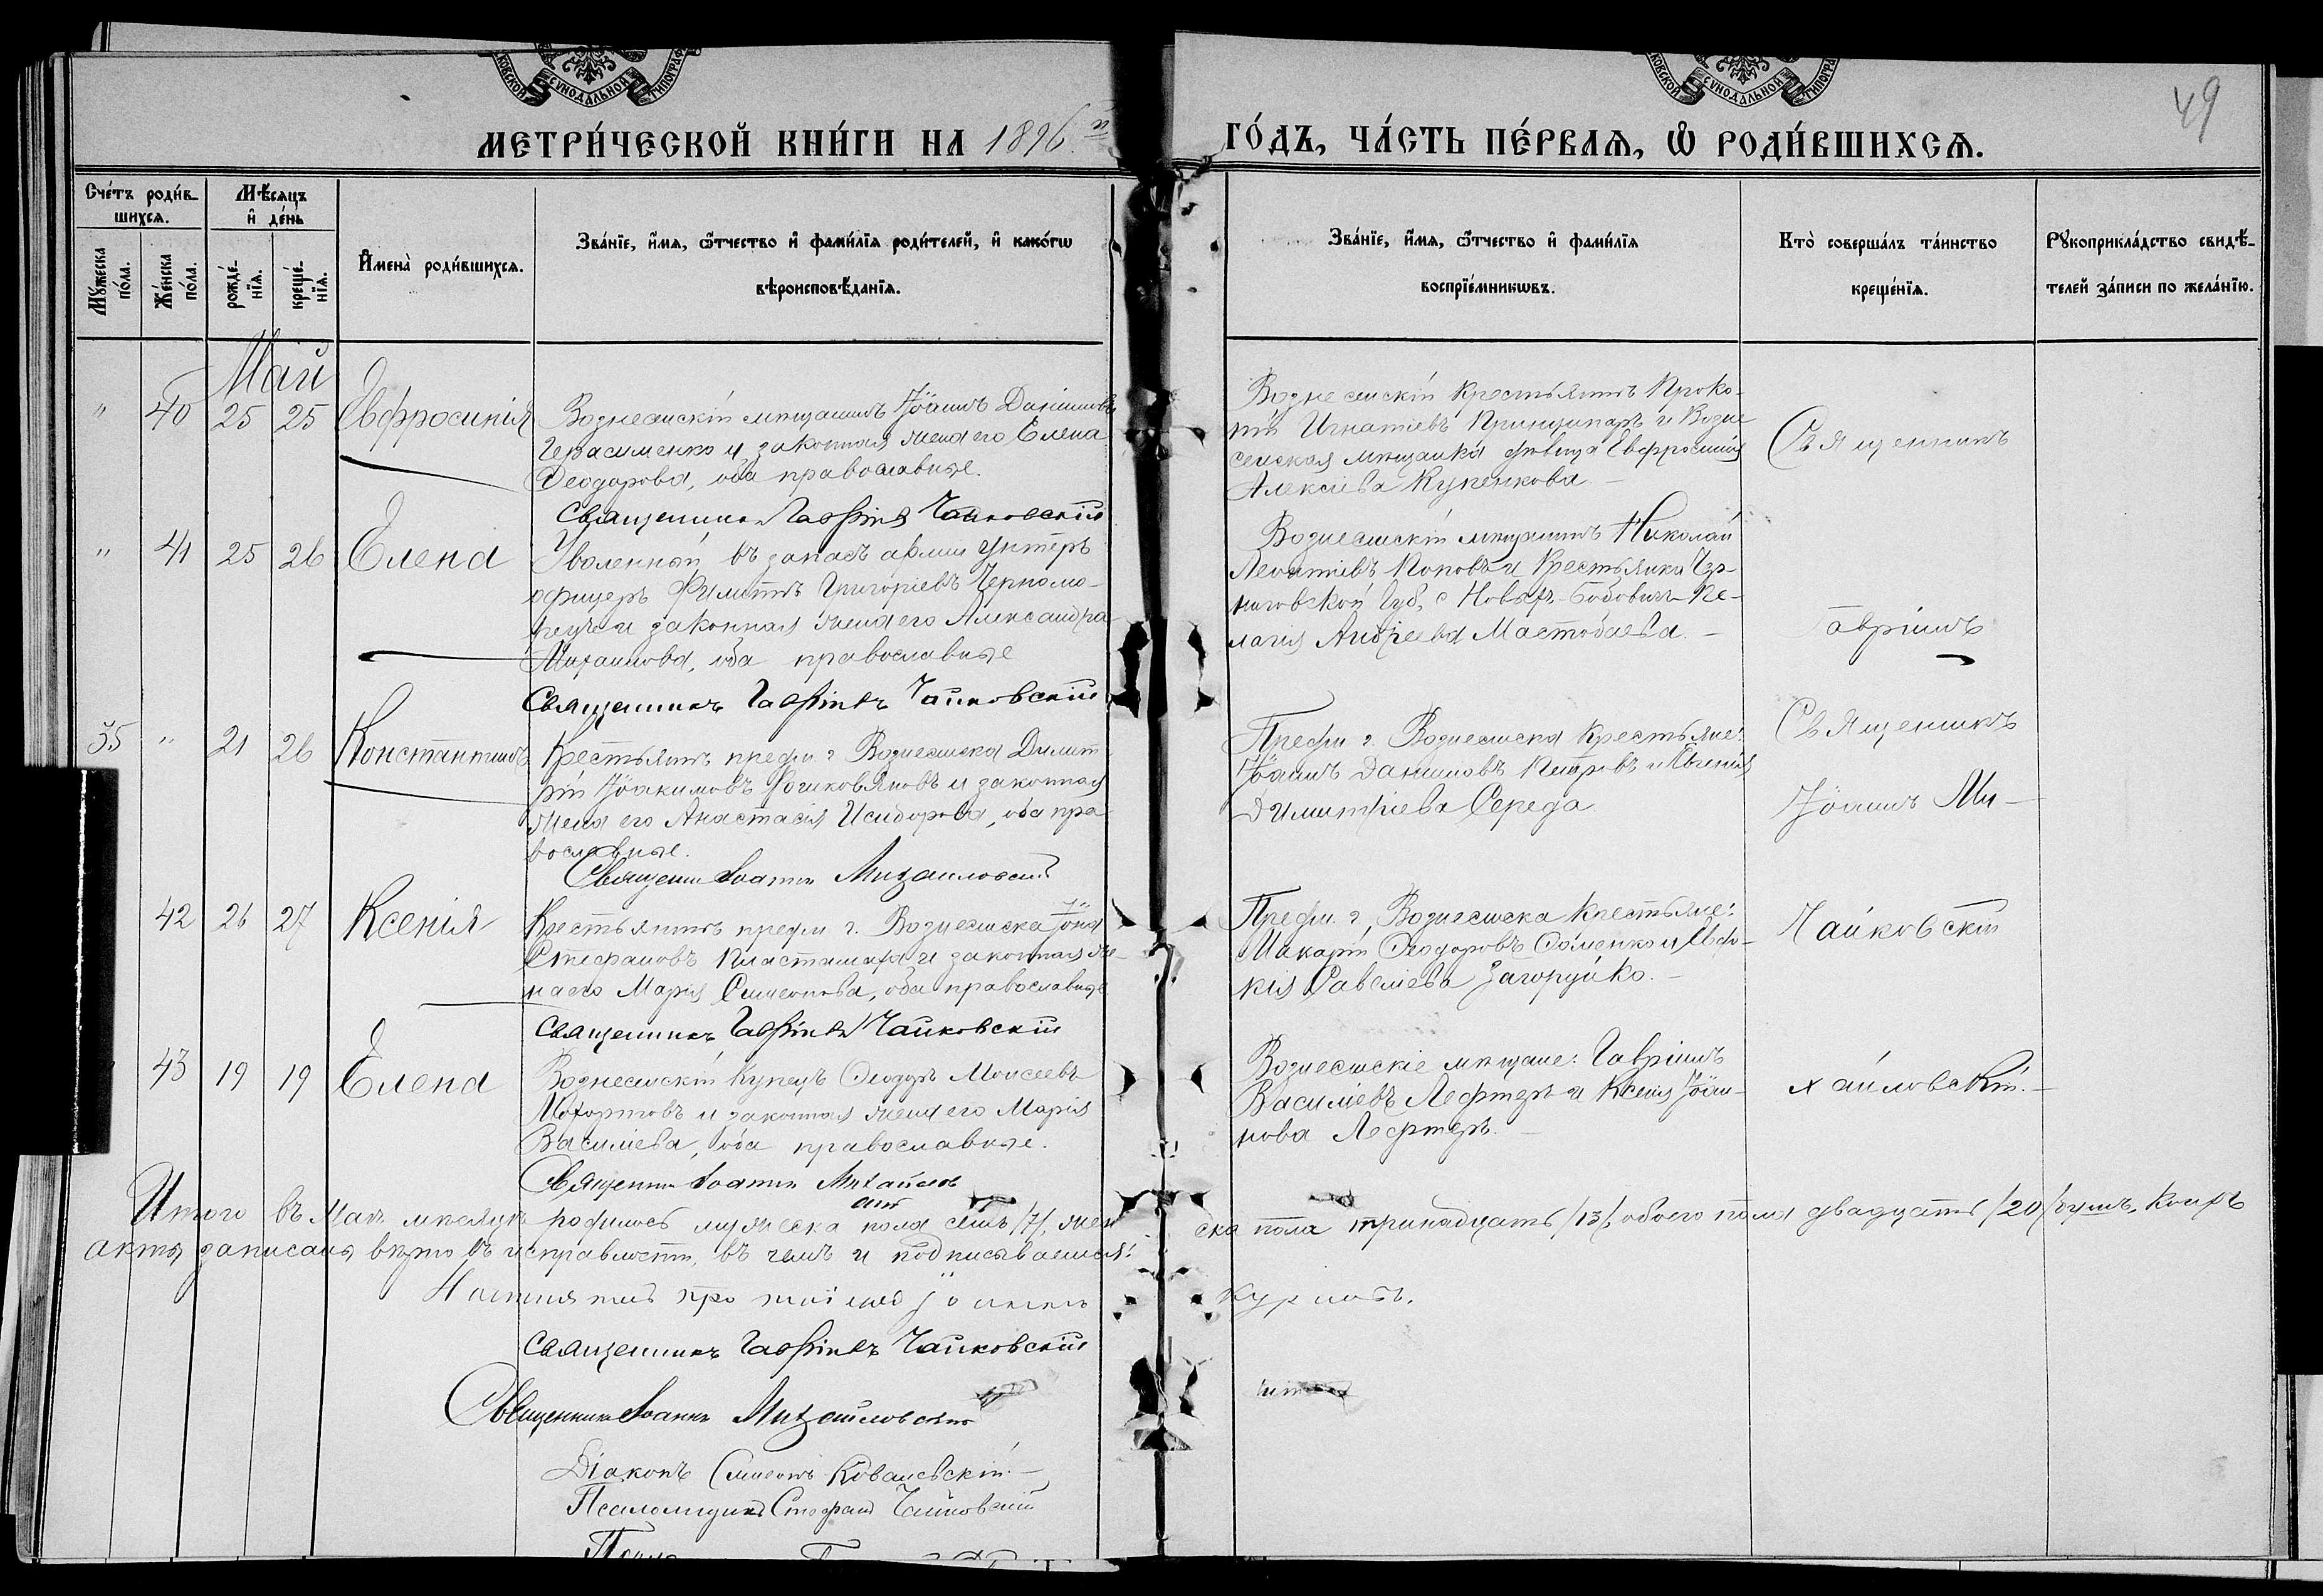 49
МЕТРИ́ЧЕСКОЙ КНИ́ГИ НА 1896 й ГО́ДЪ, ЧА́СТЬ ПЕ́РВАѦ, Ѡ҆ РОДИ́ВШИХСѦ.
Сче́тъ роди́в-
шихсѧ.
Мѣ́сѧцъ
и҆ де́нь
Мꙋ́жеска
по́ла.
Же́нска
по́ла.
рожде́-
нїѧ.
креще́-
нїѧ.
И҆мена̀ роди́вшихсѧ.
Зва́нїе, и҆́мѧ, ѻ҆́тчество и҆ фами́лїѧ роди́телей, и҆ како́гѡ
вѣроисповѣ́данїѧ.
Зва́нїе, и҆́мѧ, ѻ҆́тчество и҆ фами́лїѧ
воспрїе́мникѡвъ.
Кто̀ соверша́лъ та́инство
креще́нїѧ.
Рꙋкоприкла́дство свидѣ́-
телей за́писи по жела́нїю.
Май
" 40 25 25 Евфросинія
Вознесенскій мѣщанинъ Іоаннъ Даніиловъ
Герасименко и законная жена его Елена
Ѳеодорова, оба православные.
Священникъ Гавріилъ Чайковскій
Вознесенскій крестьянинъ Проко-
пій Игнатіевъ Принципаръ и Возне
сенская мѣщанка дѣвица Евфросинія
Алексіева Купенкова
Священникъ
" 41 25 26 Елена
Уволенной въ запасъ арміи унтеръ
офицеръ Филиппъ Григоріевъ Черномо-
рецъ и законная жена его Александра
Михаилова, оба православные
Священникъ Гавріилъ Чайковскій
Вознесенскій мѣщанинъ Николай
Леонтіевъ Поповъ и Крестьянка Чер-
ниговской Губ. с Новыхъ-Бобовичъ Пе-
лагія Андреева Мастобаева.
Гавріилъ
35 " 21 26 Константинъ
Крестьянинъ предм г. Вознесенска Димит
рій Іоакимовъ и законная
жена его Анастасія Исидорова, оба пра
вославные.
Священни Іоаннъ Михайловскій
Предм г. Вознесенска Крестьяне:
Іоаннъ Даниловъ Петровъ и Евгенія
Димитріева Середа.
Священникъ
Іоаннъ Ми-
42 26 27 Ксенія
Крестьянинъ предм г. Вознесенска Іона
Стефановъ и законная же-
на его Марія Симеонова, оба православные
Священникъ Гавріилъ Чайковскій
Предм. г. Вознесенска Крестьяне:
Макарій Ѳеодоровъ и Евдо-
кія Савеліева Загоруйко.
Чайковскій
43 19 19 Елена
Вознесенскій Купецъ Ѳеодоръ Моисеевъ
и законная жена его Марія
Василіева, оба православные.
Священни Іоаннъ Михайлов
скій
Вознесенскіе мѣщане: Гавріилъ
Василіевъ Лефтеръ и Ксенія Іоан-
нова Лефтеръ.
хайловскій.
Итого въ Маѣ мѣсяцѣ родилось мужеска пола семь /7/, жен ска пола тринадцать /13/, обоего пола двадцать /20/ душъ, коихъ
акты записаны вѣрно въ исправности, въ чемъ и подписываемся:
Настоятель протоіерей Іоаннъ
Священникъ Гавріилъ Чайковскій
Священникъ Іоаннъ Михайловскій
Діаконъ Симеонъ Ковалевскій
Псаломщикъ Стефанъ Чайковскій